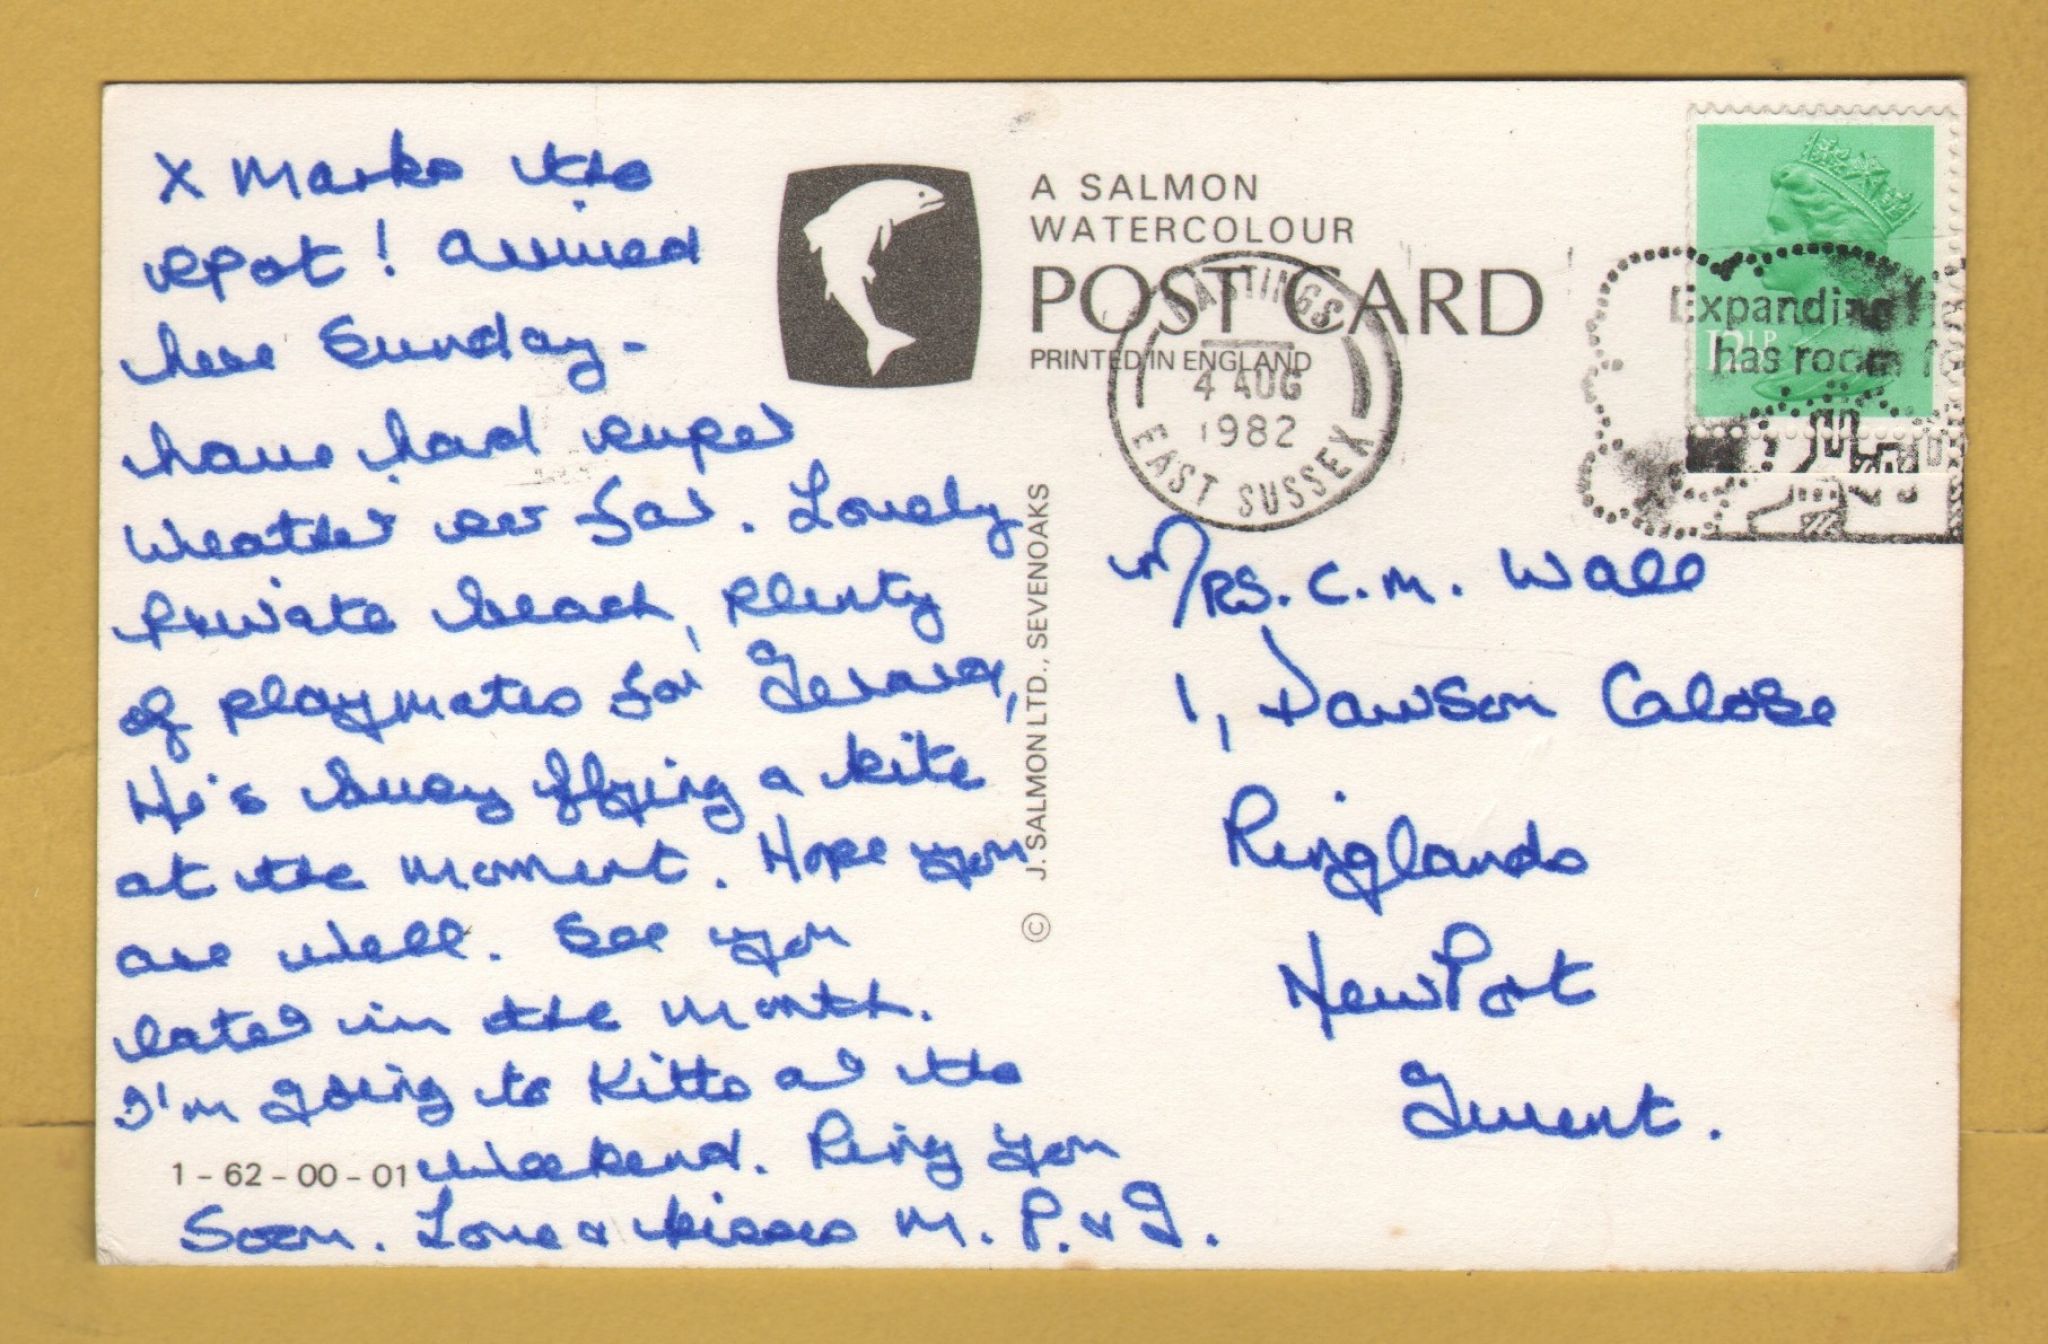 X Marks the
spot! Arrived
here Sunday -
have had super
weather so far. Lovely
Private beach, plenty
of playmates for Gerard,
He's busy flying a kite
at the moment. Hope you
are well. See you
later in the month.
I'm going to Kitts at the
weekend. Ring you
Soon. Love & kisses M. P. & G.
1 - 62 - 00 - 01
A SALMON
WATERCOLOUR
POST CARD
PRINTED IN ENGLAND
© J. SALMON LTD., SEVENOAKS
HASTINGS
4 AUG
1982
EAST SUSSEX
Expanding
has room
12½P
Mrs. C. M. Wall
1, Dawson Close
Ringlands
Newport
Gwent.